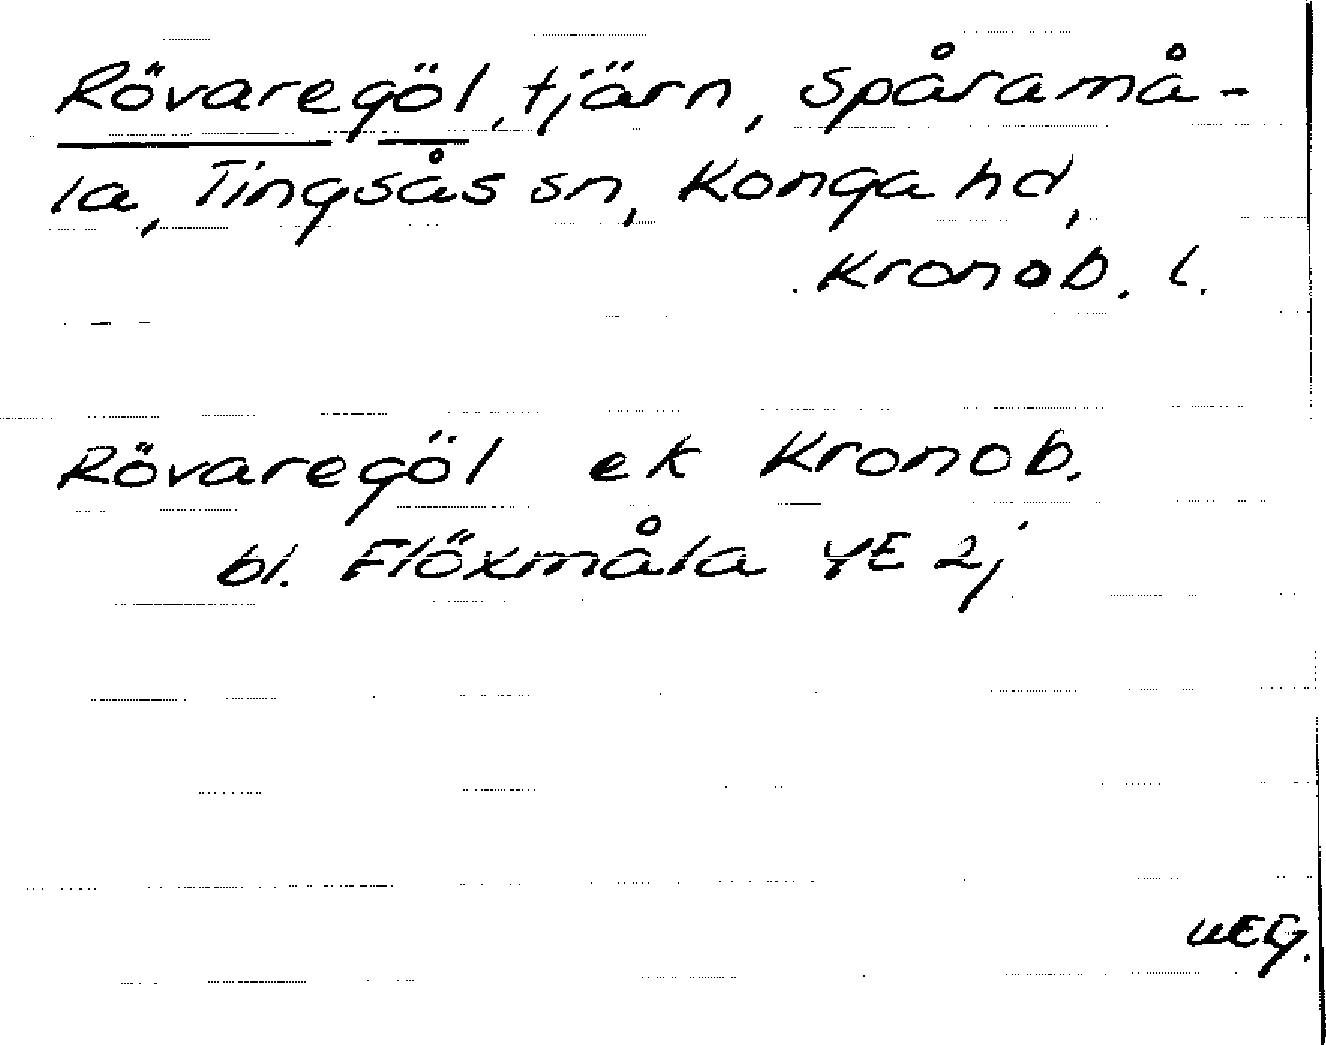 Rövaregöl, tjärn, Spåramå-
la, Tingsås sn, Konga hd,
Kronob. l.
Rövaregöl ek Kronob.
bl. Flöxmåla 4E 2j
WEG.